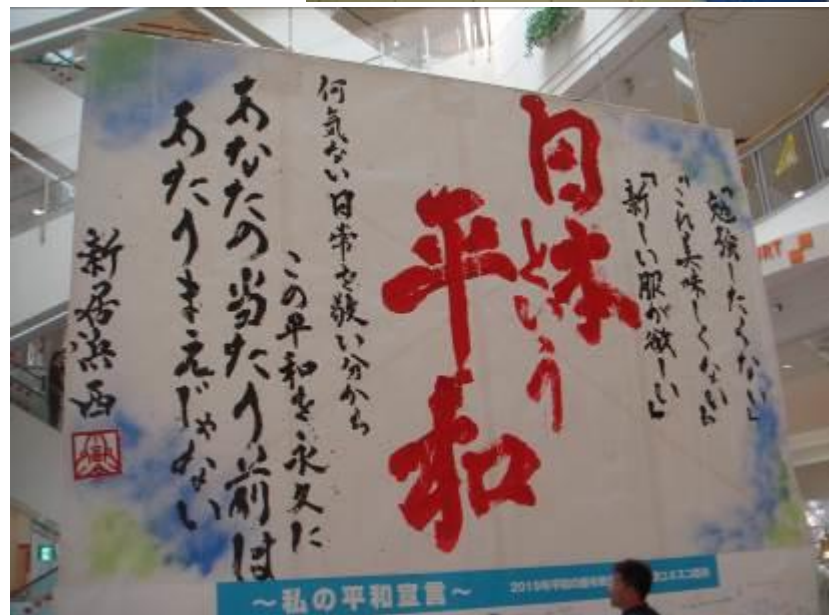 「勉強したくない」
「これ美味しくない」
「新しい服が欲しい」
日本という
平和
何気ない日常を敬い分かち
この平和を永久に
あなたの当たり前は
あたりまえじゃない
新居浜西
～私の平和宣言～